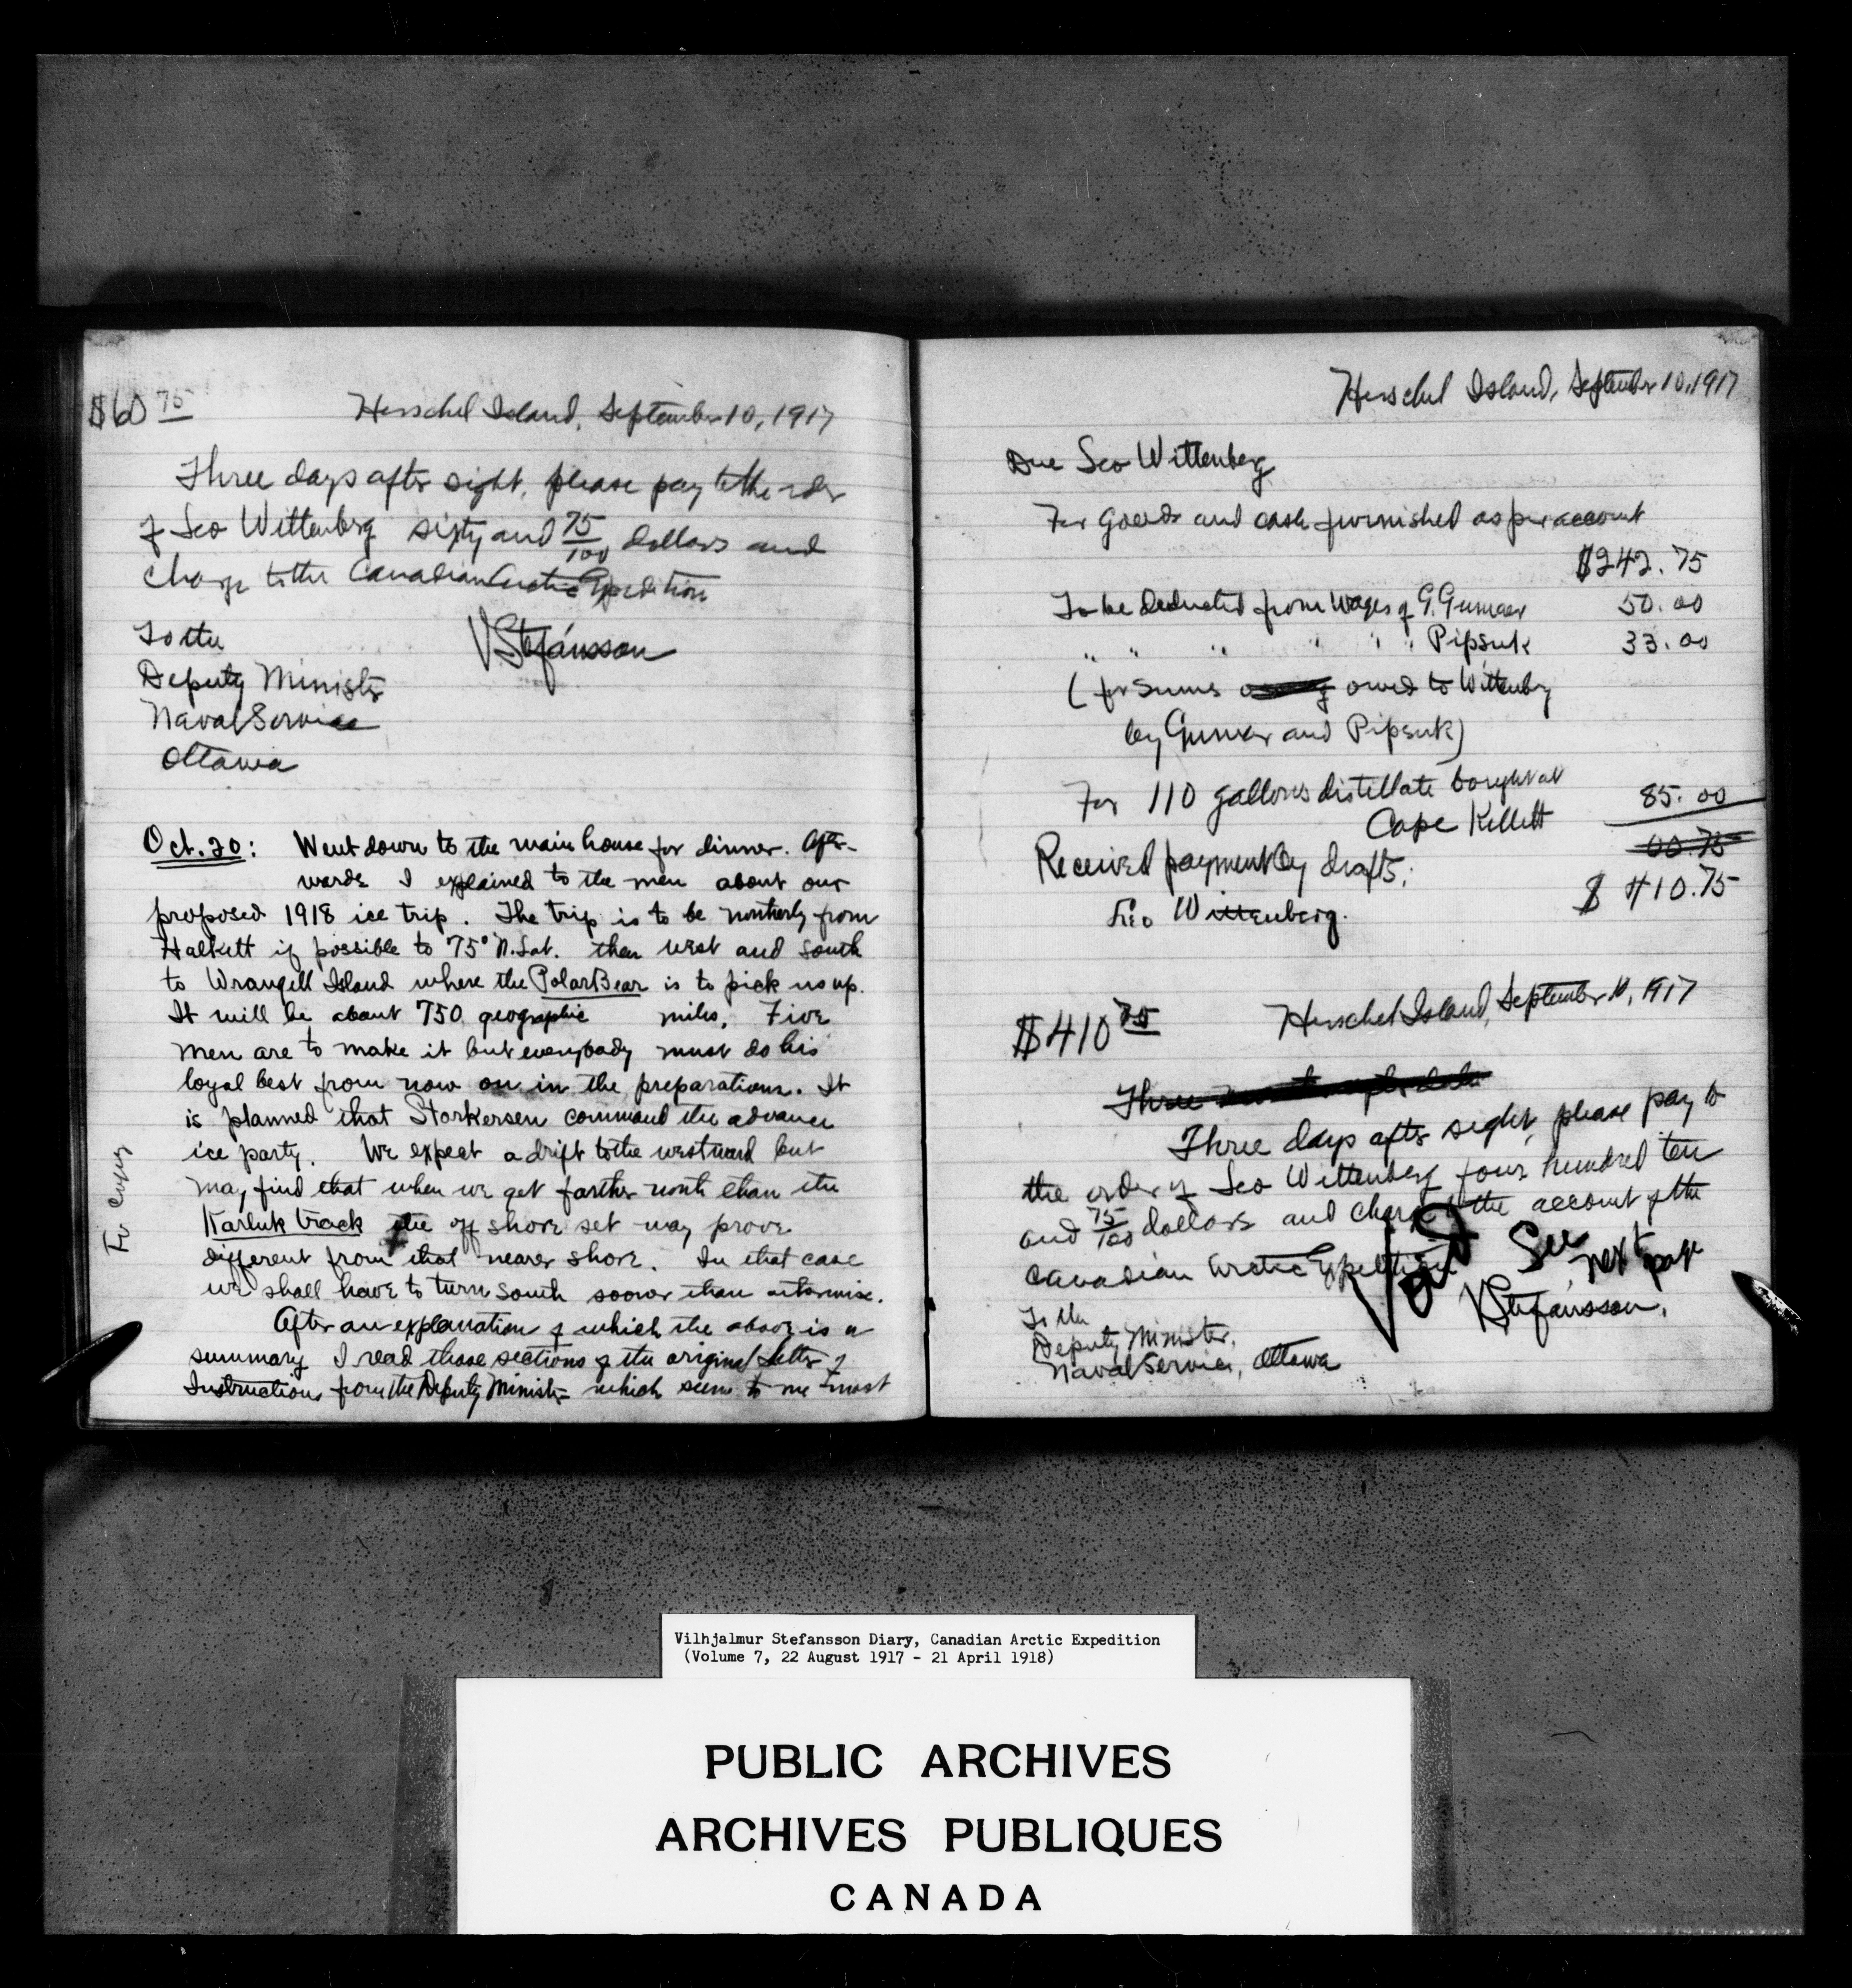 $60 75
Herschel Island, September 10, 1917
Three days after sight, please pay to the order
of Leo Wittenberg sixty and 75/100 dollars and
charge to the Canadian Arctic Expedition
To the
VStefánsson
Deputy Minister
Naval Service
Ottawa
Oct. 20: Went down to the main house for dinner. After-
wards I explained to the men about our
proposed 1918 ice trip. The trip is to be northerly from
Halkett if possible to 75° N. Lat. then west and south
to Wrangell Island where the Polar Bear is to pick us up.
It will be about 750 geographic miles. Five
men are to make it but everybody must do his
loyal best from now on in the preparations. It
is planned that Storkersen command the advance
ice party. We expect a drift to the westward but
may find that when we get farther north than the
Karluk track the off shore set may prove
different from that nearer shore. In that case
we shall have to turn south sooner than otherwise.
After an explanation of which the above is a
summary I read those sections of the original Letter of
Instructions from the Deputy Minister which seem to me most
Herschel Island, September 10, 1917
Due Leo Wittenberg
For goods and cash furnished as per account
$242.75
To be deducted from wages of G. Gumaer 50.00
" " " " " Pipsuk 33.00
(for sums owed to Wittenberg
by Gumaer and Pipsuk)
For 110 gallons distillate bought at
Cape Kellett 85.00
00.75
Received payment by drafts:
$ 410.75
Leo Wittenberg.
$410 75
Herschel Island, September 10, 1917
Three
Three days after sight, please pay to
the order of Leo Wittenberg four hundred ten
and 75/100 dollars and charge to the account of the
Canadian Arctic Expedition
Void See next page
VStefánsson.
To the
Deputy Minister,
Naval Service, Ottawa
Vilhjalmur Stefansson Diary, Canadian Arctic Expedition
(Volume 7, 22 August 1917 - 21 April 1918)
PUBLIC ARCHIVES
ARCHIVES PUBLIQUES
CANADA